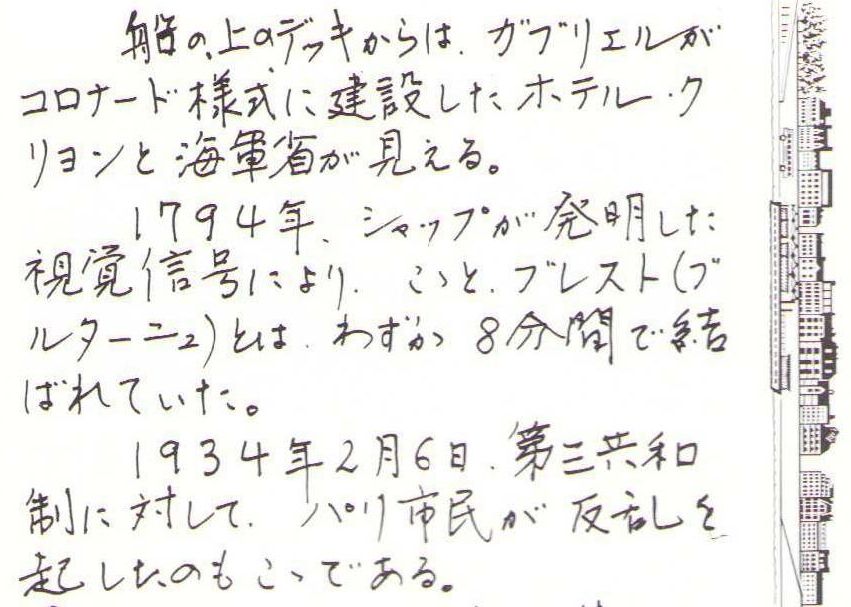 船の上のデッキからは、ガブリエルが
コロナード様式に建設したホテル・ク
リヨンと海軍省が見える。
1794年、シャップが発明した
視覚信号により、こゝと、ブレスト(ブ
ルターニュ)とは、わずか8分間で結
ばれていた。
1934年2月6日、第三共和
制に対して、パリ市民が反乱を
起したのもこゝである。